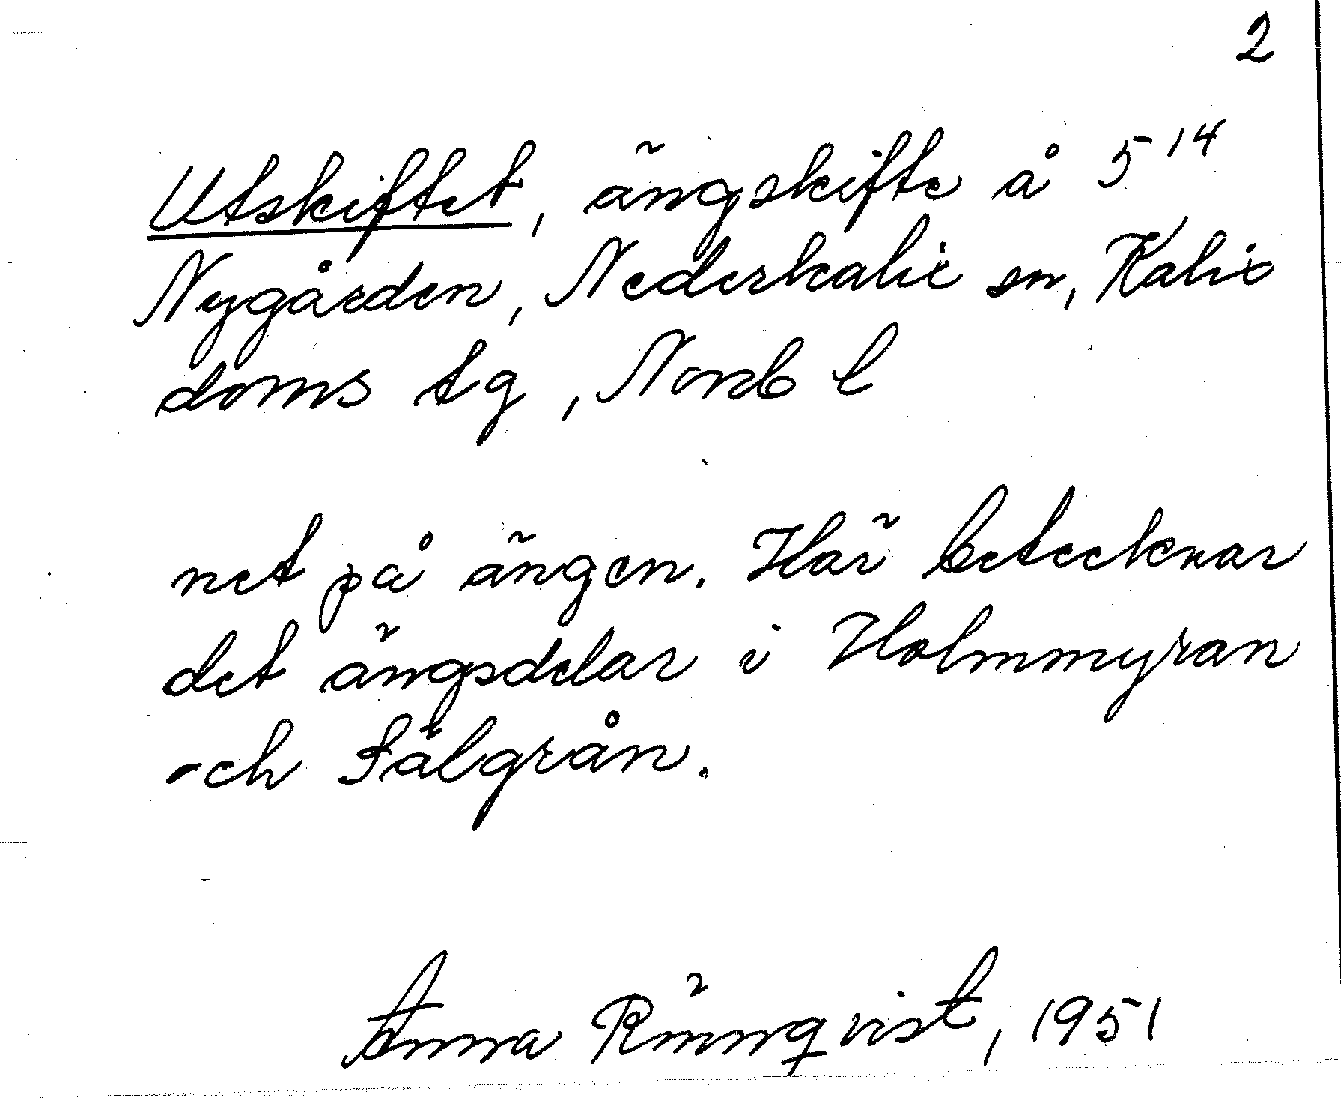 2
Utskiftet, ängskifte å 5 14
Nygården, Nederkalix sn, Kalix
doms tg, Norrb l
net på ängen. Här betecknar
det ängsdelar i Holmmyran
och Sälgrån.
Anna Rönnqvist, 1951